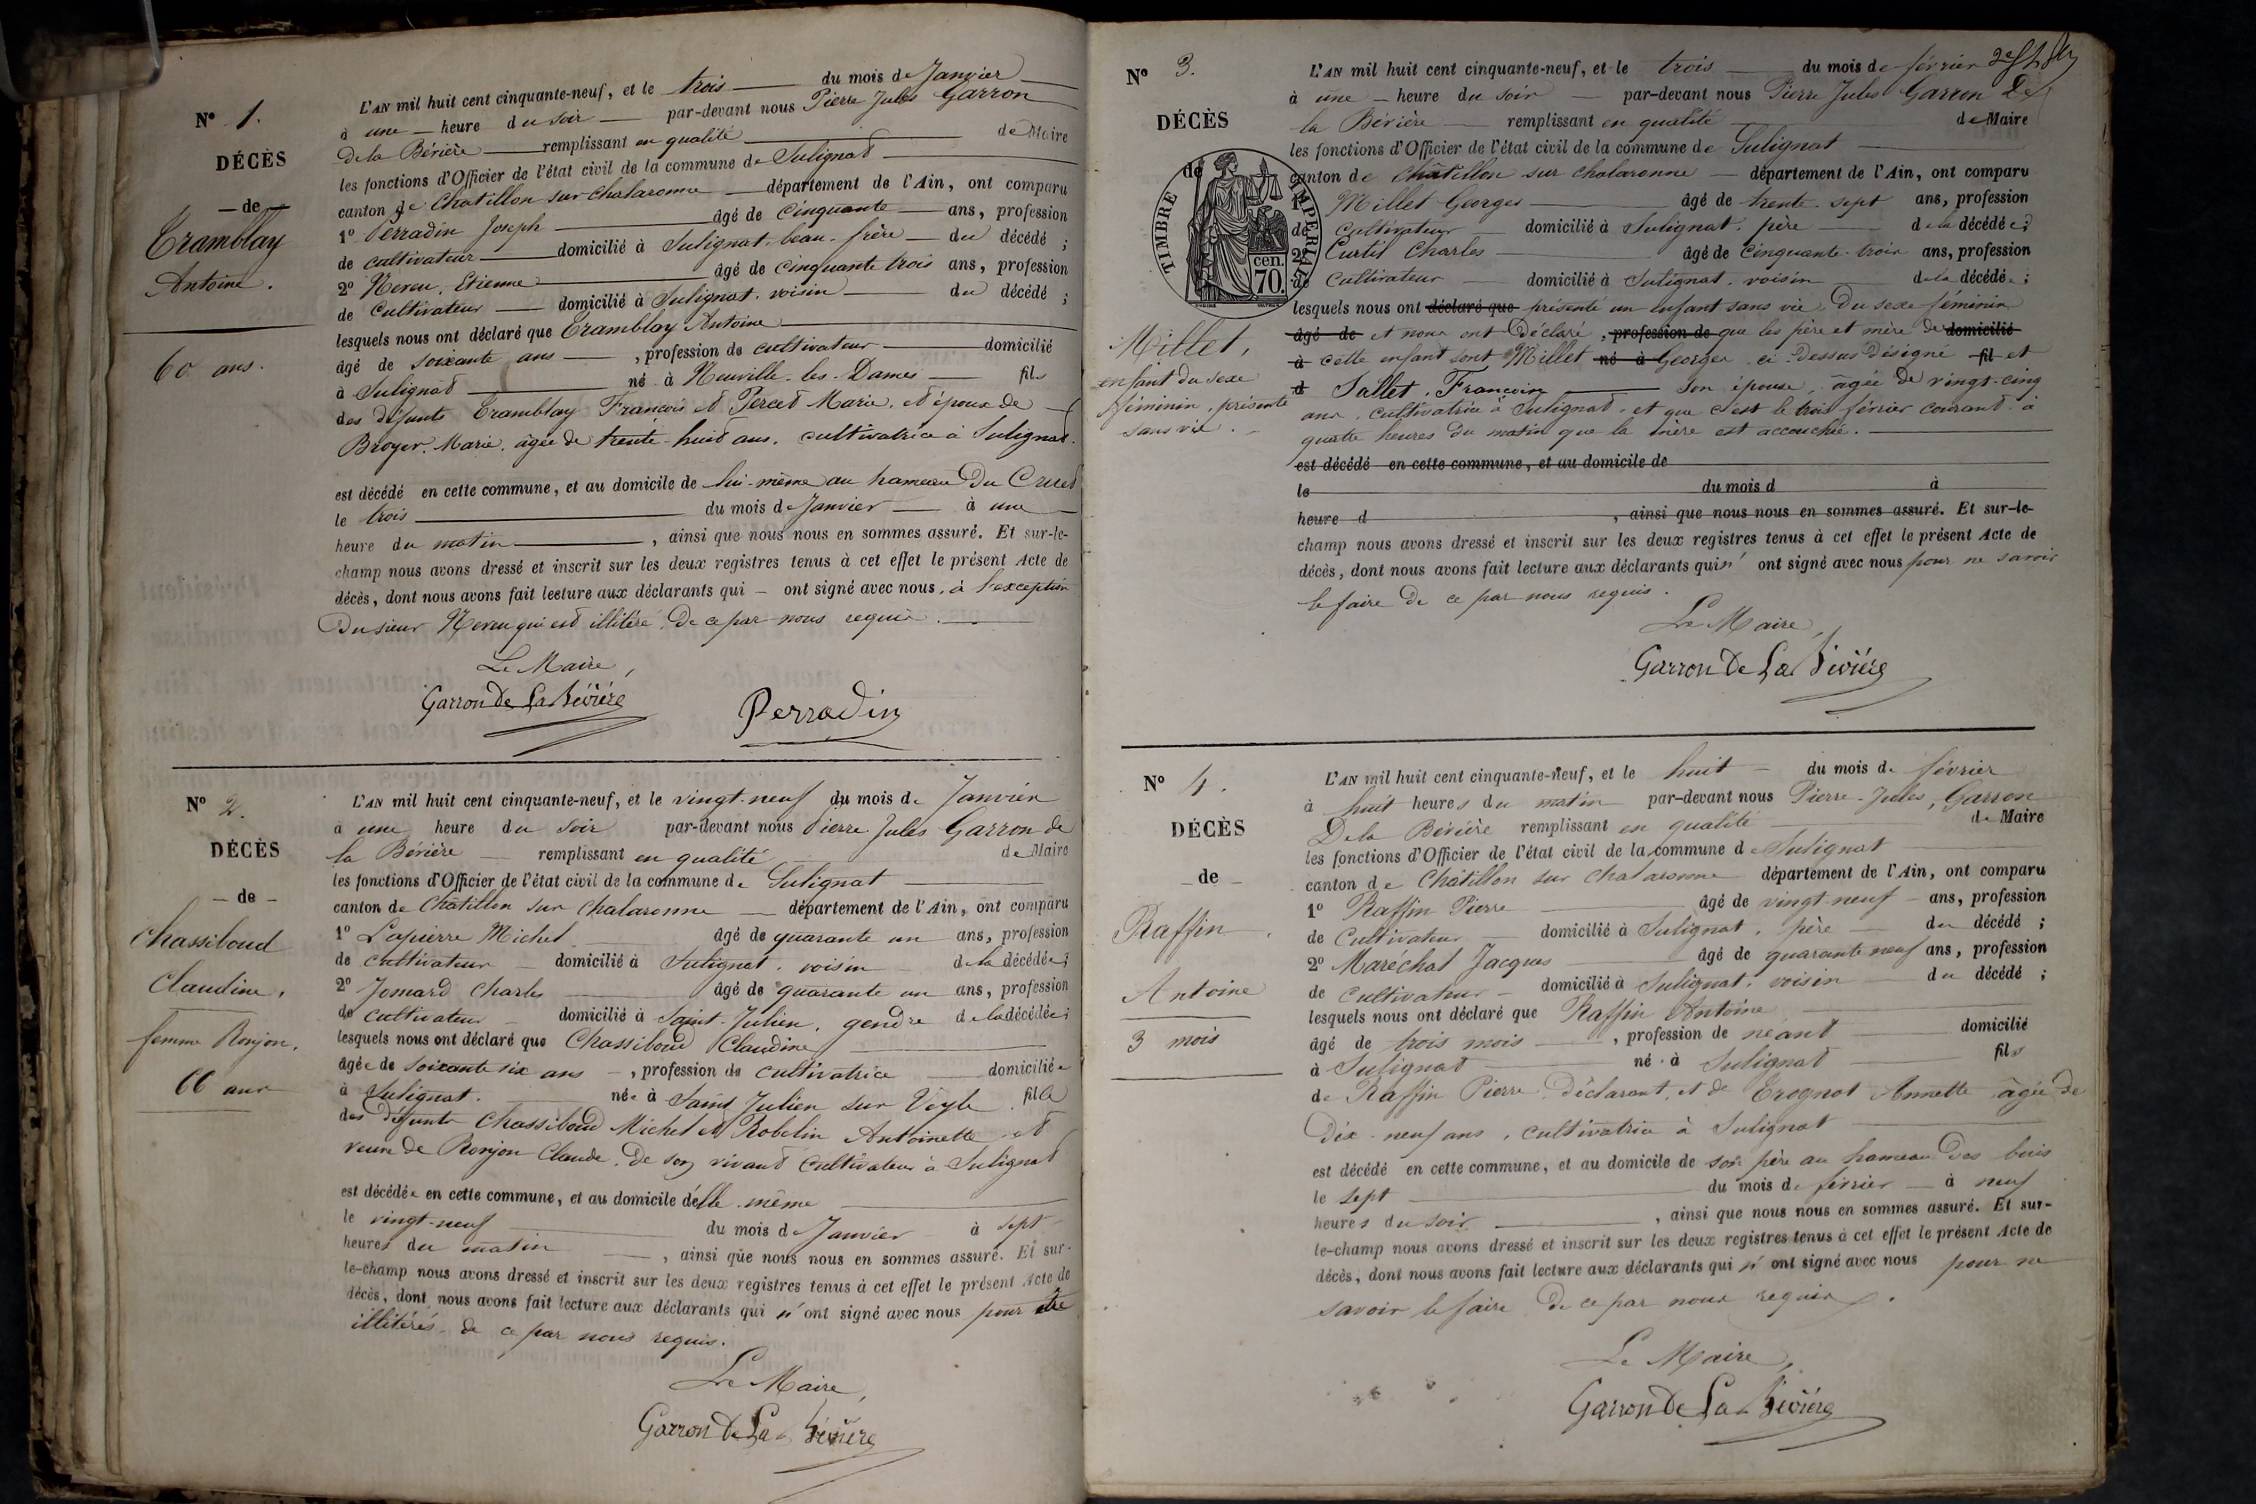 N° 1.
DÉCÈS
— de —
Tramblay
Antoine.
60 ans.
L'AN mil huit cent cinquante-neuf, et le trois du mois de Janvier
à une heure du soir par-devant nous Pierre Jules Garron
De la Bévière remplissant en qualité de Maire
les fonctions d'Officier de l'état civil de la commune de Sulignat
canton de Chatillon sur chalaronne département de l'Ain, ont comparu
1° Perradin Joseph âgé de Cinquante ans, profession
de cultivateur domicilié à Sulignat. beau-frère du décédé ;
2° Neveu, Etienne âgé de cinquante trois ans, profession
de Cultivateur domicilié à Sulignat. voisin du décédé ;
lesquels nous ont déclaré que Tramblay Antoine
âgé de soixante ans , profession de cultivateur domicilié
à Sulignat né à Neuville-les-Dames fils
des défunts Tramblay François et Percet Marie. et époux de
Broyer. Marie. âgée de trente-huit ans. cultivatrice à Sulignat.
est décédé en cette commune, et au domicile de lui-même au hameau Du Cruet
le trois du mois de Janvier à une
heure du matin , ainsi que nous nous en sommes assuré. Et sur-le-
champ nous avons dressé et inscrit sur les deux registres tenus à cet effet le présent Acte de
décès, dont nous avons fait lecture aux déclarants qui — ont signé avec nous, à l'exception
Du sieur Neveu qui est illitéré. De ce par nous requis.
Le Maire,
Garron De La Bévière
Perradin
N° 2.
DÉCÈS
— de —
Chassiboud
Claudine,
femme Ronjon.
66 ans
L'AN mil huit cent cinquante-neuf, et le vingt-neuf du mois de Janvier
à une heure du soir par-devant nous Pierre Jules Garron de
la Bévière remplissant en qualité de Maire
les fonctions d'Officier de l'état civil de la commune de Sulignat
canton de Châtillon sur Chalaronne département de l'Ain, ont comparu
1° Lapierre Michel âgé de quarante un ans, profession
de cultivateur domicilié à Sulignat. voisin de la décédée ;
2° Jomard Charles âgé de quarante un ans, profession
de cultivateur domicilié à Saint-Julien, gendre de la décédée ;
lesquels nous ont déclaré que Chassiboud Claudine
âgée de soixante six ans , profession de cultivatrice domiciliée
à Sulignat. née à Saint Julien sur Veyle fille
des défunts Chassiboud Michel et Robelin Antoinette et
veuve de Ronjon Claude. De son vivant Cultivateur à Sulignat
est décédée en cette commune, et au domicile d'elle-même
le vingt-neuf du mois de Janvier à sept
heures du matin , ainsi que nous nous en sommes assuré. Et sur-
le-champ nous avons dressé et inscrit sur les deux registres tenus à cet effet le présent Acte de
décès, dont nous avons fait lecture aux déclarants qui n'ont signé avec nous pour être
illitérés. de ce par nous requis.
Le Maire,
Garron De La Bévière
N° 3.
DÉCÈS
de
TIMBRE IMPERIAL
cen. 70.
Millet,
enfant du sexe
féminin, présenté
sans vie.
L'AN mil huit cent cinquante-neuf, et le trois du mois de février
à une heure du soir par-devant nous Pierre Jules Garron De
la Bévière remplissant en qualité de Maire
les fonctions d'Officier de l'état civil de la commune de Sulignat
canton de Châtillon sur chalaronne département de l'Ain, ont comparu
1° Millet Georges âgé de trente-sept ans, profession
de cultivateur domicilié à Sulignat. père de la décédée ;
2° Curtil Charles âgé de Cinquante-trois ans, profession
de Cultivateur domicilié à Sulignat. voisin de la décédée ;
lesquels nous ont déclaré que présenté un enfant sans vie Du sexe féminin
âgé de et nous ont Déclaré , profession de que les père et mère de domicilié
à cette enfant sont Millet né à Georges ci-Dessus Désigné fil et
d Sallet, Françoise Son épouse, âgée De vingt-cinq
ans, cultivatrice à Sulignat. et que c'est le trois février courant. à
quatre heures Du matin que la mère est accouchée.
est décédé en cette commune, et au domicile de
le du mois d à
heure d , ainsi que nous nous en sommes assuré. Et sur-le-
champ nous avons dressé et inscrit sur les deux registres tenus à cet effet le présent Acte de
décès, dont nous avons fait lecture aux déclarants qui n'ont signé avec nous pour ne savoir
le faire De ce par nous requis.
Le Maire,
Garron De La Bévière
N° 4.
DÉCÈS
— de —
Raffin.
Antoine
3 mois
L'AN mil huit cent cinquante-neuf, et le huit du mois de février
à huit heures du matin par-devant nous Pierre-Jules, Garron
De la Bévière remplissant en qualité de Maire
les fonctions d'Officier de l'état civil de la commune de Sulignat
canton de Châtillon sur chalaronne département de l'Ain, ont comparu
1° Raffin Pierre âgé de vingt-neuf ans, profession
de Cultivateur domicilié à Sulignat. père du décédé ;
2° Maréchal Jacques âgé de quarante neuf ans, profession
de cultivateur domicilié à Sulignat. voisin du décédé ;
lesquels nous ont déclaré que Raffin Antoine
âgé de trois mois , profession de néant domicilié
à Sulignat né à Sulignat fils
de Raffin Pierre Déclarant, et de Trognot Annette âgée De
Dix-neuf ans, cultivatrice à Sulignat
est décédé en cette commune, et au domicile de son père au hameau Des buis
le sept du mois de février à neuf
heures du soir , ainsi que nous nous en sommes assuré. Et sur-
le-champ nous avons dressé et inscrit sur les deux registres tenus à cet effet le présent Acte de
décès, dont nous avons fait lecture aux déclarants qui n'ont signé avec nous pour ne
savoir le faire De ce par nous requis.
Le Maire,
Garron De La Bévière